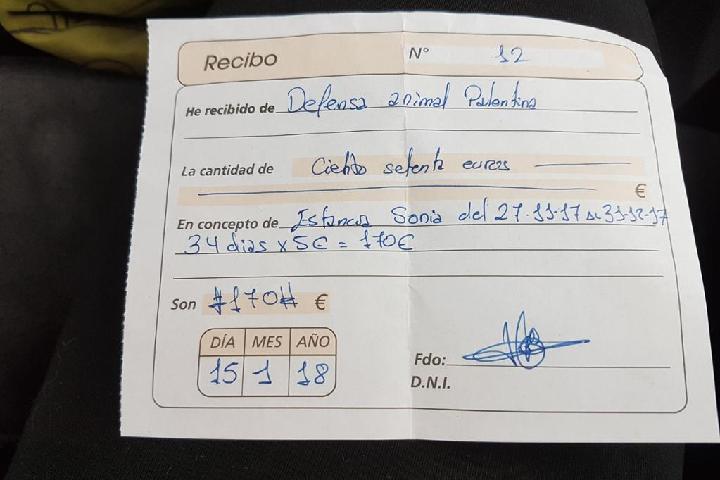 Recibo Nº 12
He recibido de Defensa animal Palentina
La cantidad de Ciento setenta euros
€
En concepto de Estancia Sonia del 27-11-17 al 31-12-17
34 dias x 5€ = 170€
Son #170# €
DÍA MES AÑO
15 1 18
Fdo:
D.N.I.